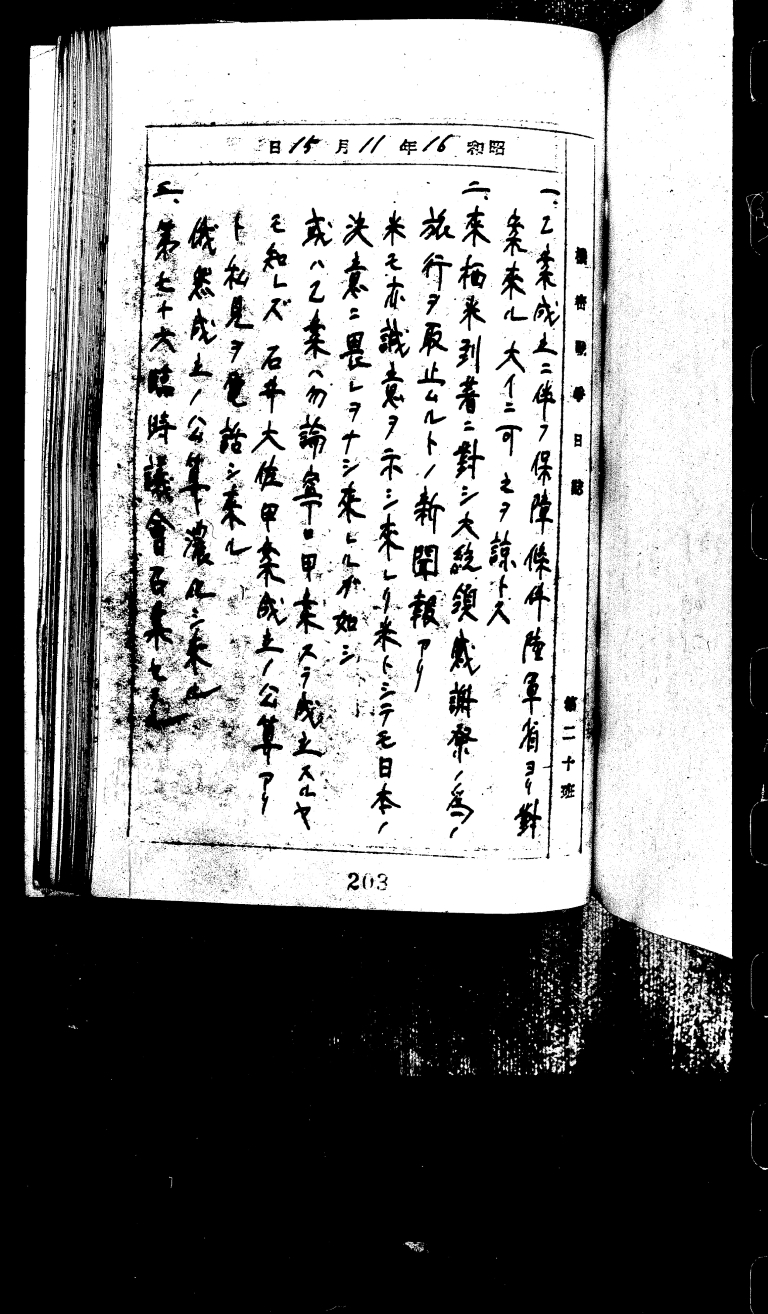 機密戰爭日誌
第二十班
昭和16年11月15日
一、乙案成立ニ伴フ保障條件陸軍省ヨリ對
案來ル 大イニ可 之ヲ諒トス
二、來栖米到著ニ對シ大統領感謝祭ノ爲ノ
旅行ヲ取止ムルトノ新聞報アリ
米モ亦誠意ヲ示シ來レリ米トシテモ日本ノ
決意ニ畏レヲナシ來レルガ如シ
或ハ乙案ハ勿論寧ロ甲案スラ成立スルヤ
モ知レズ 石井大佐甲案成立ノ公算アリ
ト私見ヲ電話シ來ル
俄然成立ノ公算濃化シ來ル
三、第七十六臨時議會召集セラル
203